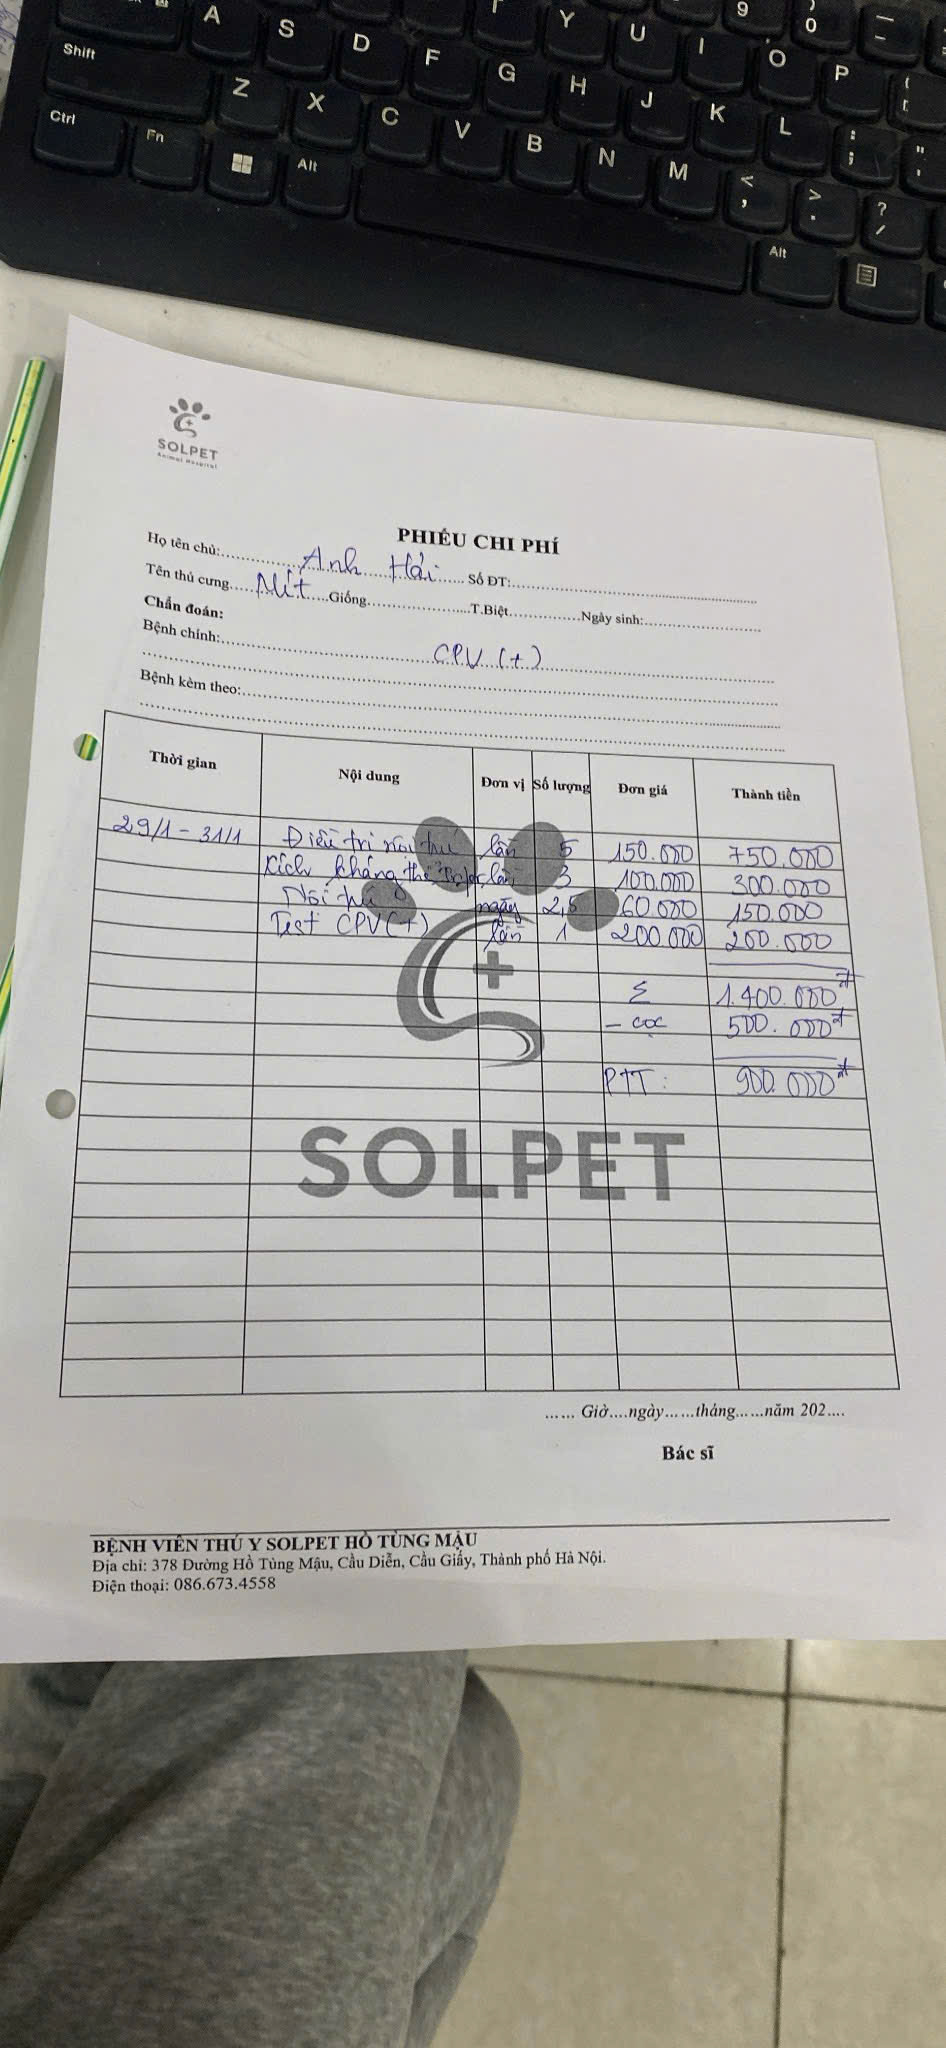 A S D F G H J K L Y U I O P 9 0
Shift Z X C V B N M < , > . ? / : ; " '
Ctrl Fn Alt Alt
SOLPET
Animal Hospital
PHIẾU CHI PHÍ
Họ tên chủ:......Anh Hải......Số ĐT:......
Tên thú cưng......Nít......Giống......T.Biệt......Ngày sinh:......
Chẩn đoán:
Bệnh chính:......CPV (+)......
Bệnh kèm theo:......
Thời gian Nội dung Đơn vị Số lượng Đơn giá Thành tiền
29/1 - 31/1 Điều trị nội trú lần 5 150.000 750.000
Kích kháng thể lần 3 100.000 300.000
Nội trú ngày 2,5 60.000 150.000
Test CPV (+) lần 1 200.000 200.000
Σ 1.400.000đ
- cọc 500.000đ
PTT: 900.000đ
SOLPET
...... Giờ....ngày......tháng......năm 202....
Bác sĩ
BỆNH VIÊN THÚ Y SOLPET HỒ TÙNG MẬU
Địa chỉ: 378 Đường Hồ Tùng Mậu, Cầu Diễn, Cầu Giấy, Thành phố Hà Nội.
Điện thoại: 086.673.4558